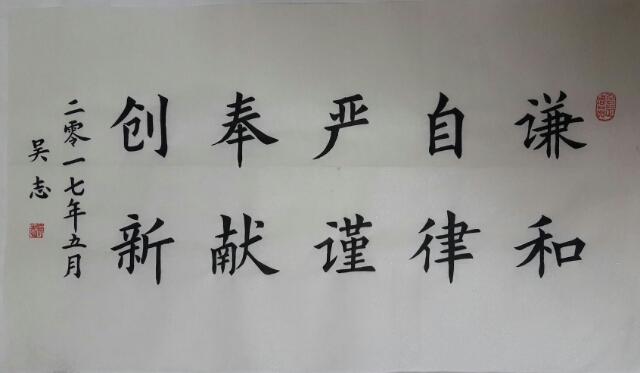 谦和
自律
严谨
奉献
创新
二零一七年五月
吴志